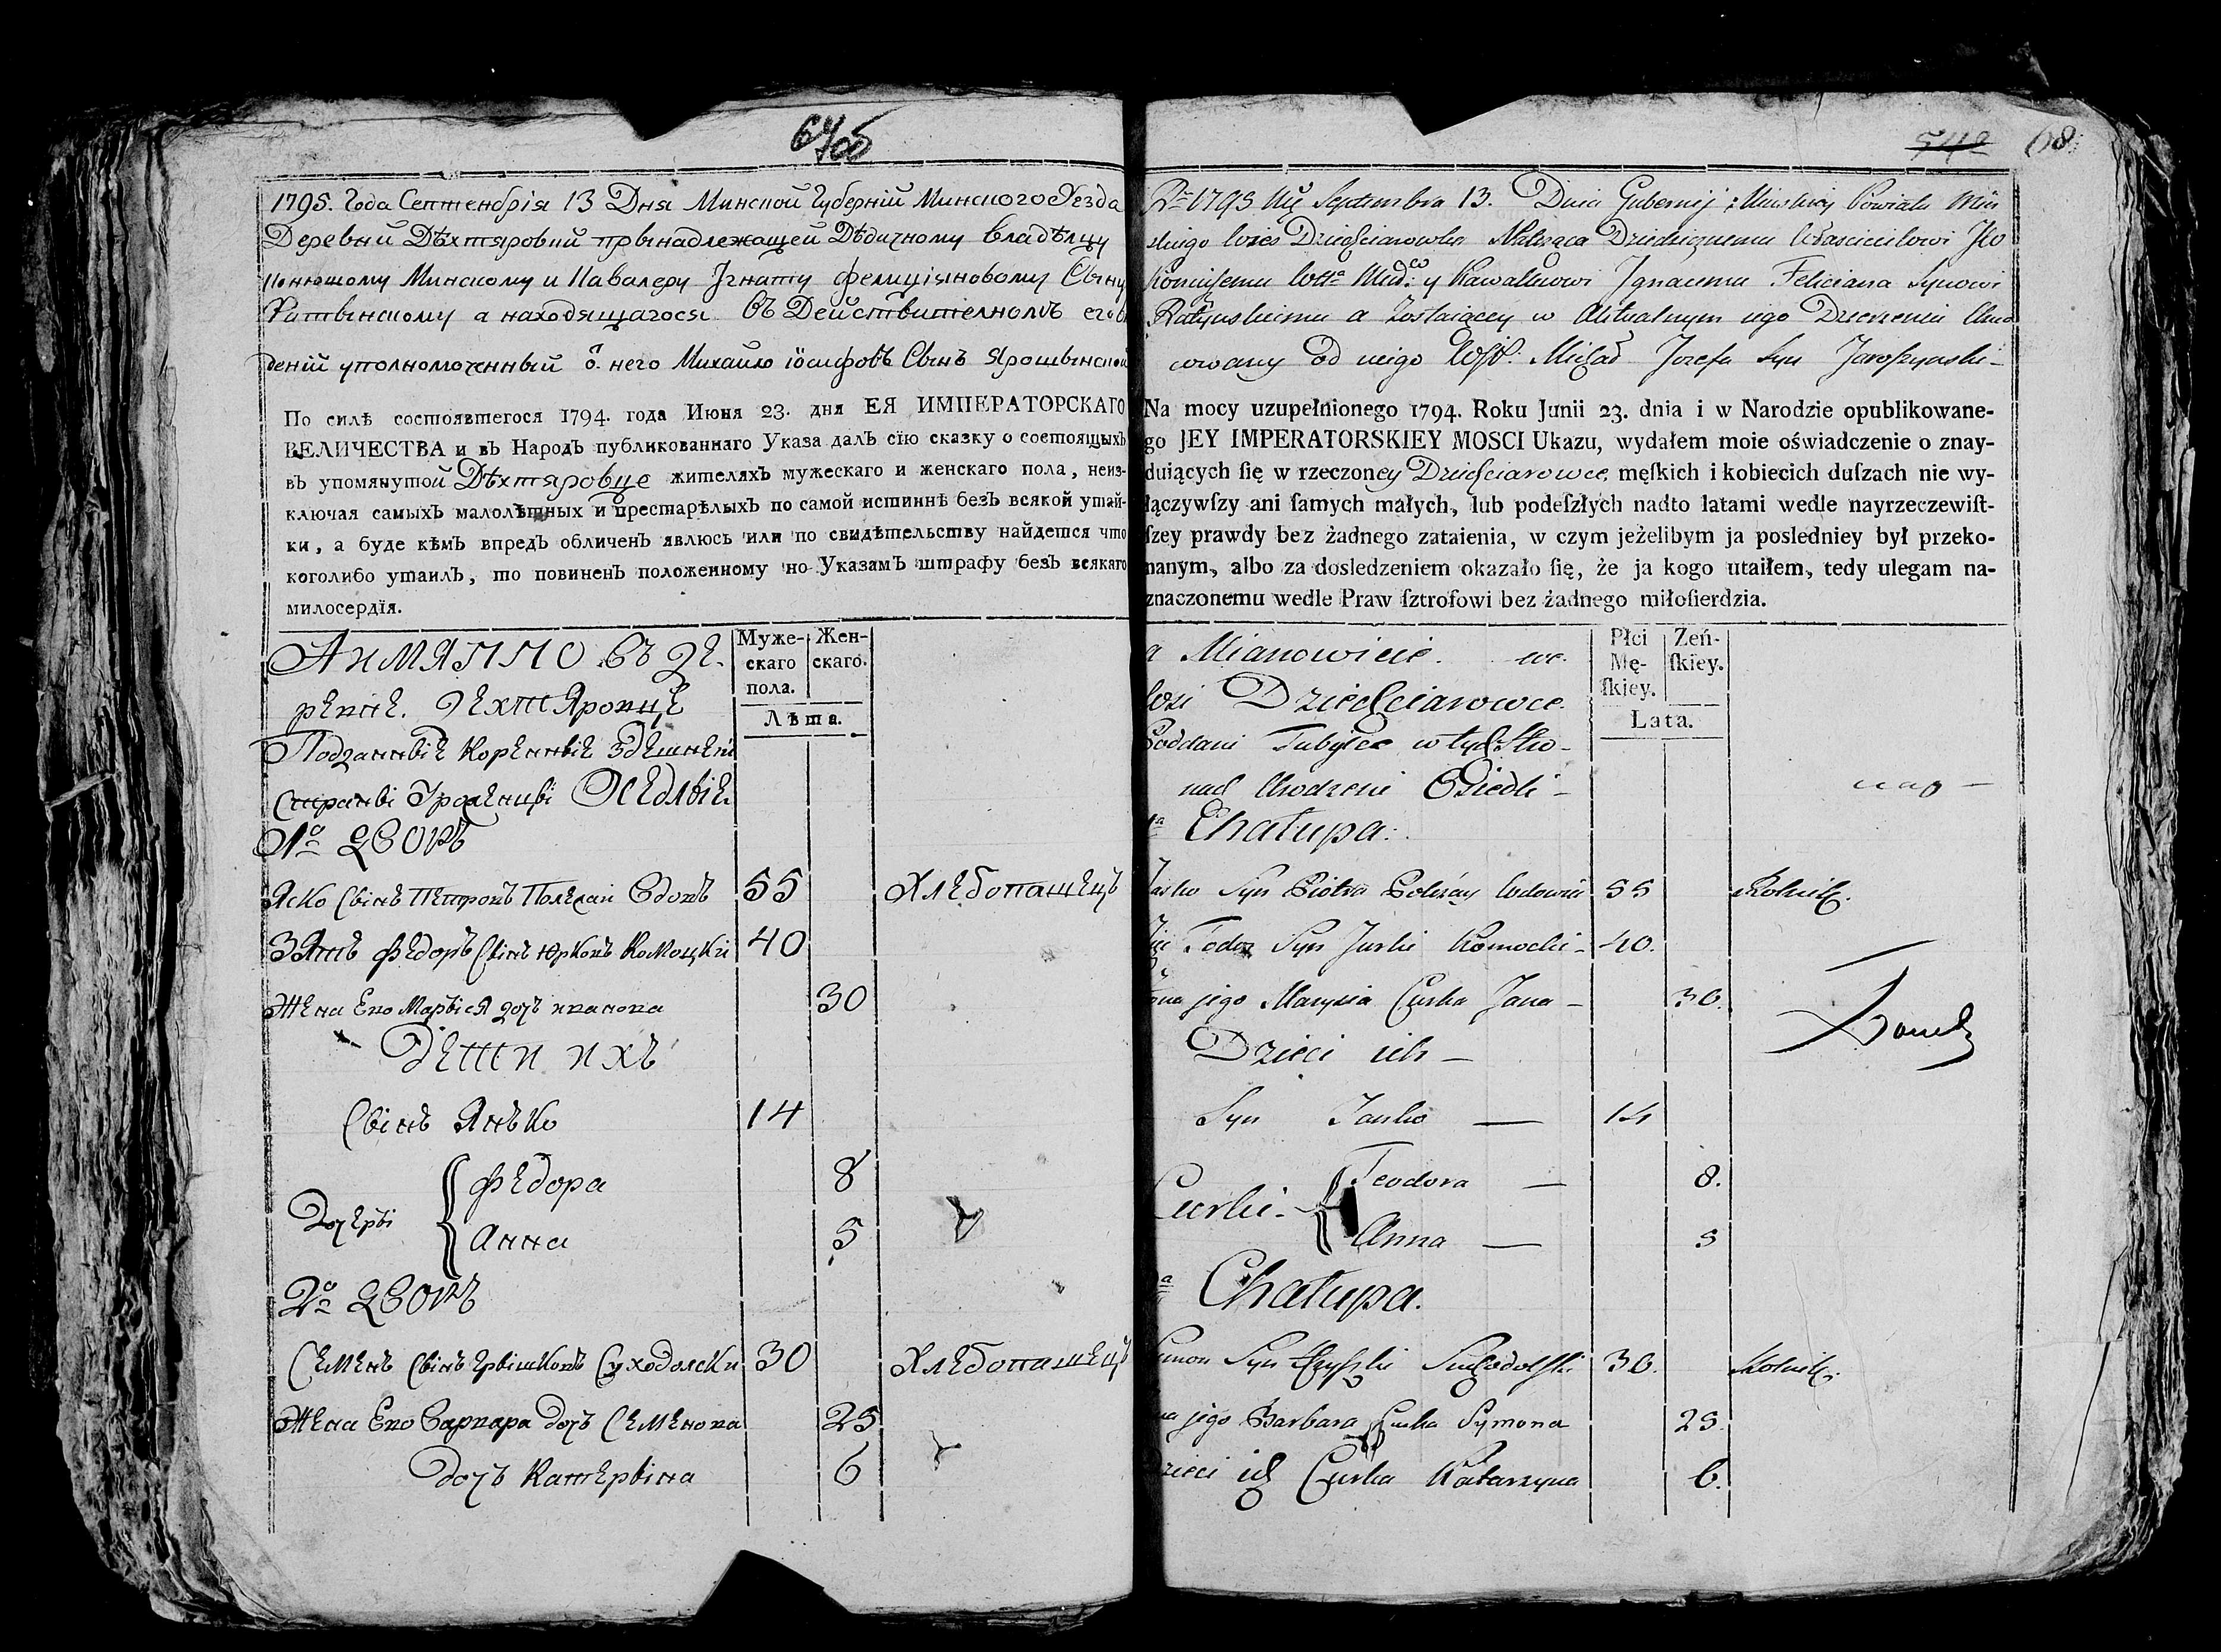 64об
1795. Года Септембрія 13 Дня Минской Губерній Минского Уезда
Деревни Дѣхтяровки прынадлежащей Дѣдичному владѣлцу
Конюшому Минскому и Кавалеру Iгнату Фелиціяновому Сыну
Ратынскому а находящагося въ Действителномъ его в
деній уполномоченный о̃. него Михайло іосифовъ Сынъ Ярошынской
По силѣ состоявшегося 1794. года Июня 23. дня ЕЯ ИМПЕРАТОРСКАГО
ВЕЛИЧЕСТВА и въ Народъ публикованнаго Указа далъ сїю сказку о состоящыхъ
въ упомянутой Дѣхтяровце жителяхъ мужескаго и женскаго пола, неиз-
ключая самыхъ малолѣтныхъ и престарѣлыхъ по самой истиннѣ безъ всякой утай-
ки, а буде кѣмъ впредъ обличенъ явлюсь или по свидѣтельству найдется что
коголибо утаилъ, то повиненъ положенному по Указамъ штрафу безъ всякаго
милосердїя.
А имянно въ де-
ревне. Дехтяровце
Подданныіе коренныіе здешнеи
страны Урожденцы Оседлыіе
Муже-
скаго
пола.
Жен-
скаго.
Лѣта.
1º дворъ
Яско Сынъ Петровъ Полежаи Вдовъ 55 Хлебопашецъ
Зять Федоръ Сынъ Юрковъ Комоцки 40
Жена Ево Марыся дочъ иванова 30
Дети ихъ
Сынъ Янько 14
Дочеры { Федора 8
Анна 5
2º дворъ
Семенъ Сынъ Ерышковъ Суходолски 30 Хлебопашецъ
Жена Ево Варвара дочъ Семенова 25
дочъ Катерына 6
542 68
Rº 1795 Septembra 13. Dnia Gubernij Minskiej Powiatu Min
skiego wies Dziechciarowka Należąca Dziedzicznemu Właścicielowi Jko
Koniuszemu y Kawalerowi Jgnacemu Feliciana Synowi
Ratynskiemu a zostaiącey w Aktualnym iego Dzierzeniu Umo
cowany od niego Michał Jozefa Syn Jaroszynski
Na mocy uzupełnionego 1794. Roku Junii 23. dnia i w Narodzie opublikowane-
go JEY IMPERATORSKIEY MOSCI Ukazu, wydałem moie oświadczenie o znay-
duiących ſię w rzeczoney Dziechciarowce, męſkich i kobiecich duſzach nie wy-
łączywſzy ani ſamych małych, lub podeſzłych nadto latami wedle nayrzeczewiſt-
ſzey prawdy bez żadnego zataienia, w czym jeżelibym ja posledniey był przeko-
nanym, albo za dosledzeniem okazało ſię, że ja kogo utaiłem, tedy ulegam na-
znaczonemu wedle Praw ſztrofowi bez żadnego miłoſierdzia.
a Mianowicie. we.
wsi Dziechciarowce
Poddani Tubylce w tych stro-
nach Urodzeni Osiedli
Płci
Mę-
ſkiey.
Żeń-
ſkiey.
Lata.
Chałupa.
Jasko Syn Piotra Poleżay Wdowiec 55 Rolnik.
Zięć Fedor Syn Jurki Komocki 40.
Żona jego Marysia Curka Jana 30.
Dzieci ich
Syn Janko 14
Curki { Teodora 8.
Anna 5
Chałupa.
Symon Syn Hryszki Suchodolski 30. Rolnik.
Żona jego Barbara Curka Symona 25.
Dzieci ich Curka Katarzyna 6.